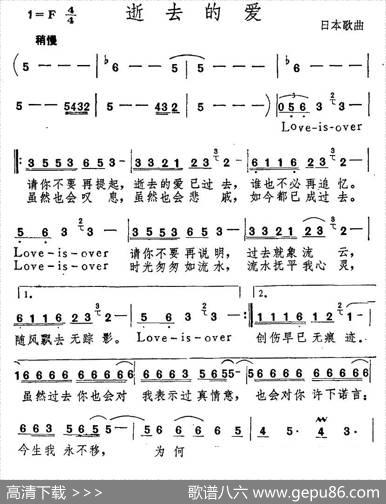 逝去的爱
1=F 4/4
日本歌曲
稍慢
(5 - - - | ♭6 - - - | 5 - - - | ♭6 - - -
5 - - 5432 | 5 - - 432 | 5 - - - ) | 056 3 3 -
Love-is-over
3553 653· | 3321 23 2 - | 6116 23 2 -
请你不要再提起, 逝去的爱已过去, 谁也不必再追忆。
虽然也会叹息, 虽然也会悲戚, 如今都已成过去。
5 6 3 3 - | 3553 653· | 3321 23 2 -
Love-is-over 请你不要再说明, 过去就象流云,
Love-is-over 时光匆匆如流水, 流水抚平我心灵,
1. 2.
6116 23 2 - | 56 3 3 - :| 6112 12 1 -
随风飘去无踪影。Love-is-over 创伤早已无痕迹。
虽然过去你也会对 我表示过真情意, 也会对你许下诺言:
663 563 | 5655 - | 4 4 3 - | 5· 5· 4 -
今生我永不移, 为何
高清下载 >>>
歌谱八六 www.gepu86.com